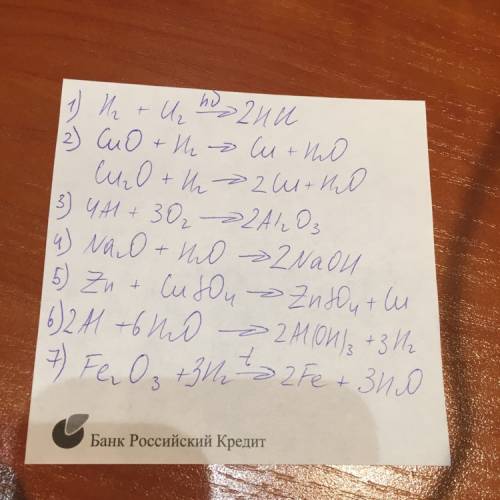 1) H₂ + Cl₂ hν→ 2HCl
2) CuO + H₂ → Cu + H₂O
Cu₂O + H₂ → 2Cu + H₂O
3) 4Al + 3O₂ → 2Al₂O₃
4) Na₂O + H₂O → 2NaOH
5) Zn + CuSO₄ → ZnSO₄ + Cu
6) 2Al + 6H₂O → 2Al(OH)₃ + 3H₂
7) Fe₂O₃ + 3H₂ t→ 2Fe + 3H₂O
Банк Российский Кредит